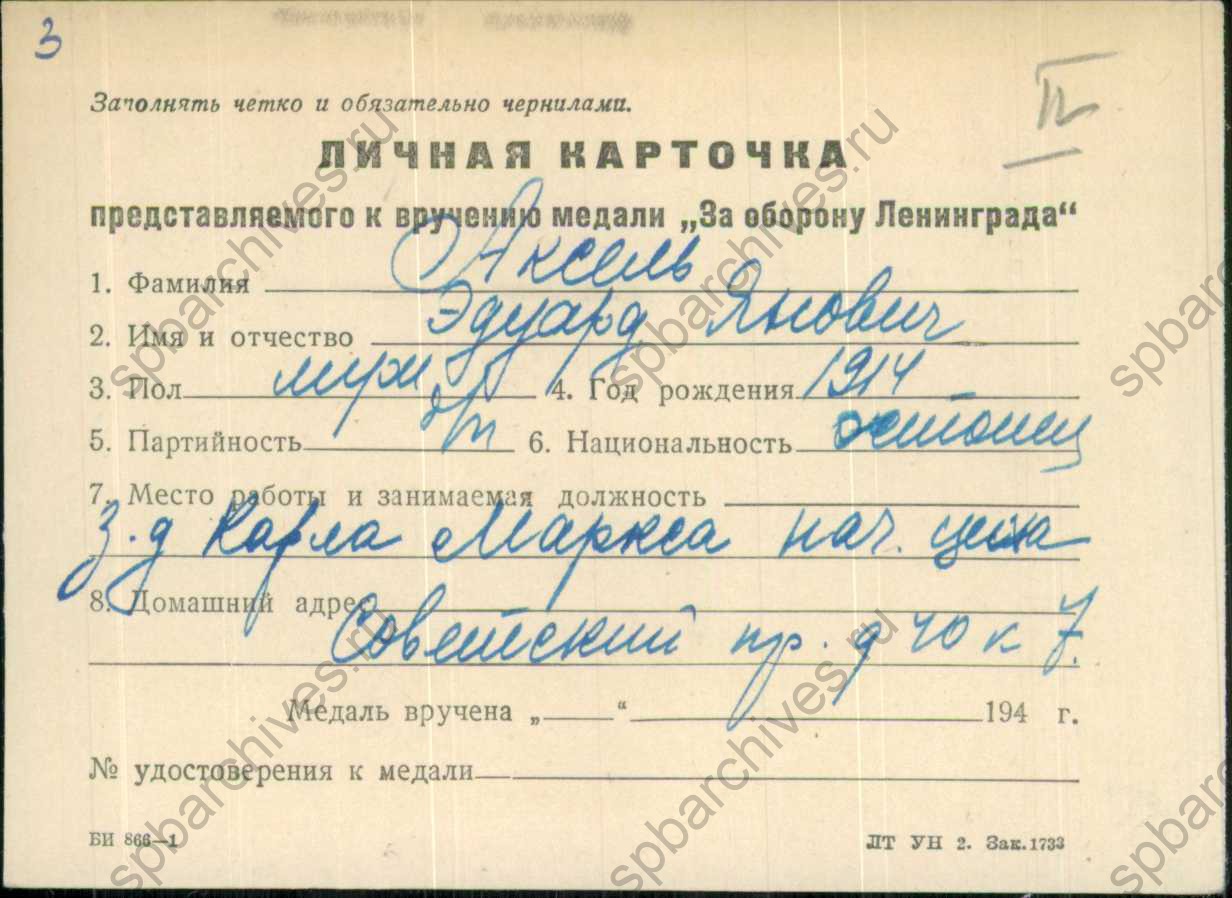 3
Заполнять четко и обязательно чернилами.
ЛИЧНАЯ КАРТОЧКА
представляемого к вручению медали „За оборону Ленинграда“
1. Фамилия Аксель
2. Имя и отчество Эдуард Янович
3. Пол муж 4. Год рождения 1914
5. Партийность б/п 6. Национальность эстонец
7. Место работы и занимаемая должность
з-д Карла Маркса нач. цеха
8. Домашний адрес
Советский пр. д 40 к 7.
Медаль вручена „ “ 194 г.
№ удостоверения к медали
БИ 866—1 ЛТ УН 2. Зак. 1733
spbarchives.ru